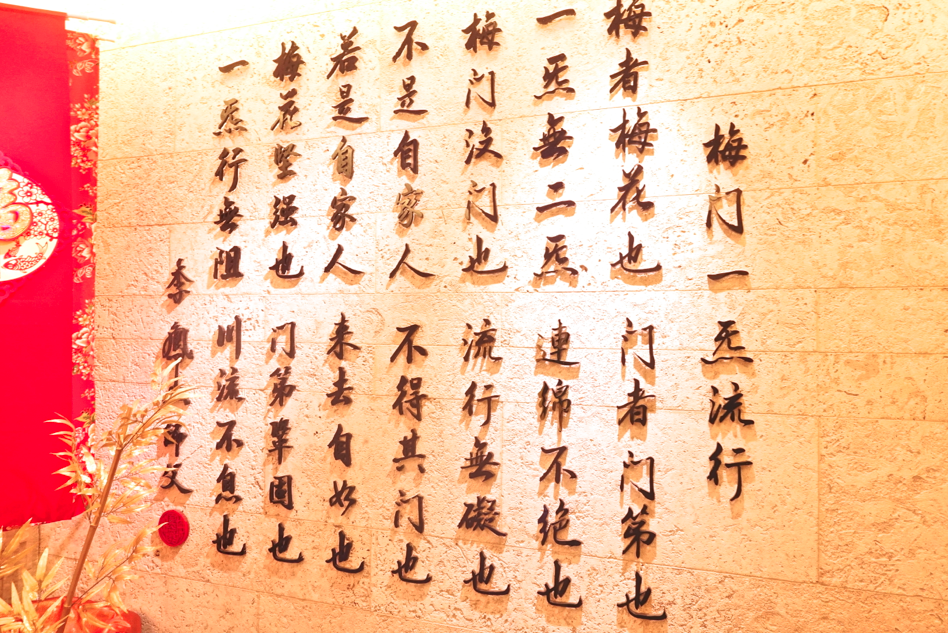 梅门一炁流行
梅者梅花也 门者门第也
一炁無二炁 連绵不绝也
梅门没门也 流行無礙也
不是自家人 不得其门也
若是自家人 来去自如也
梅花坚强也 门第鞏固也
一炁行無阻 川流不息也
李鳳山师父